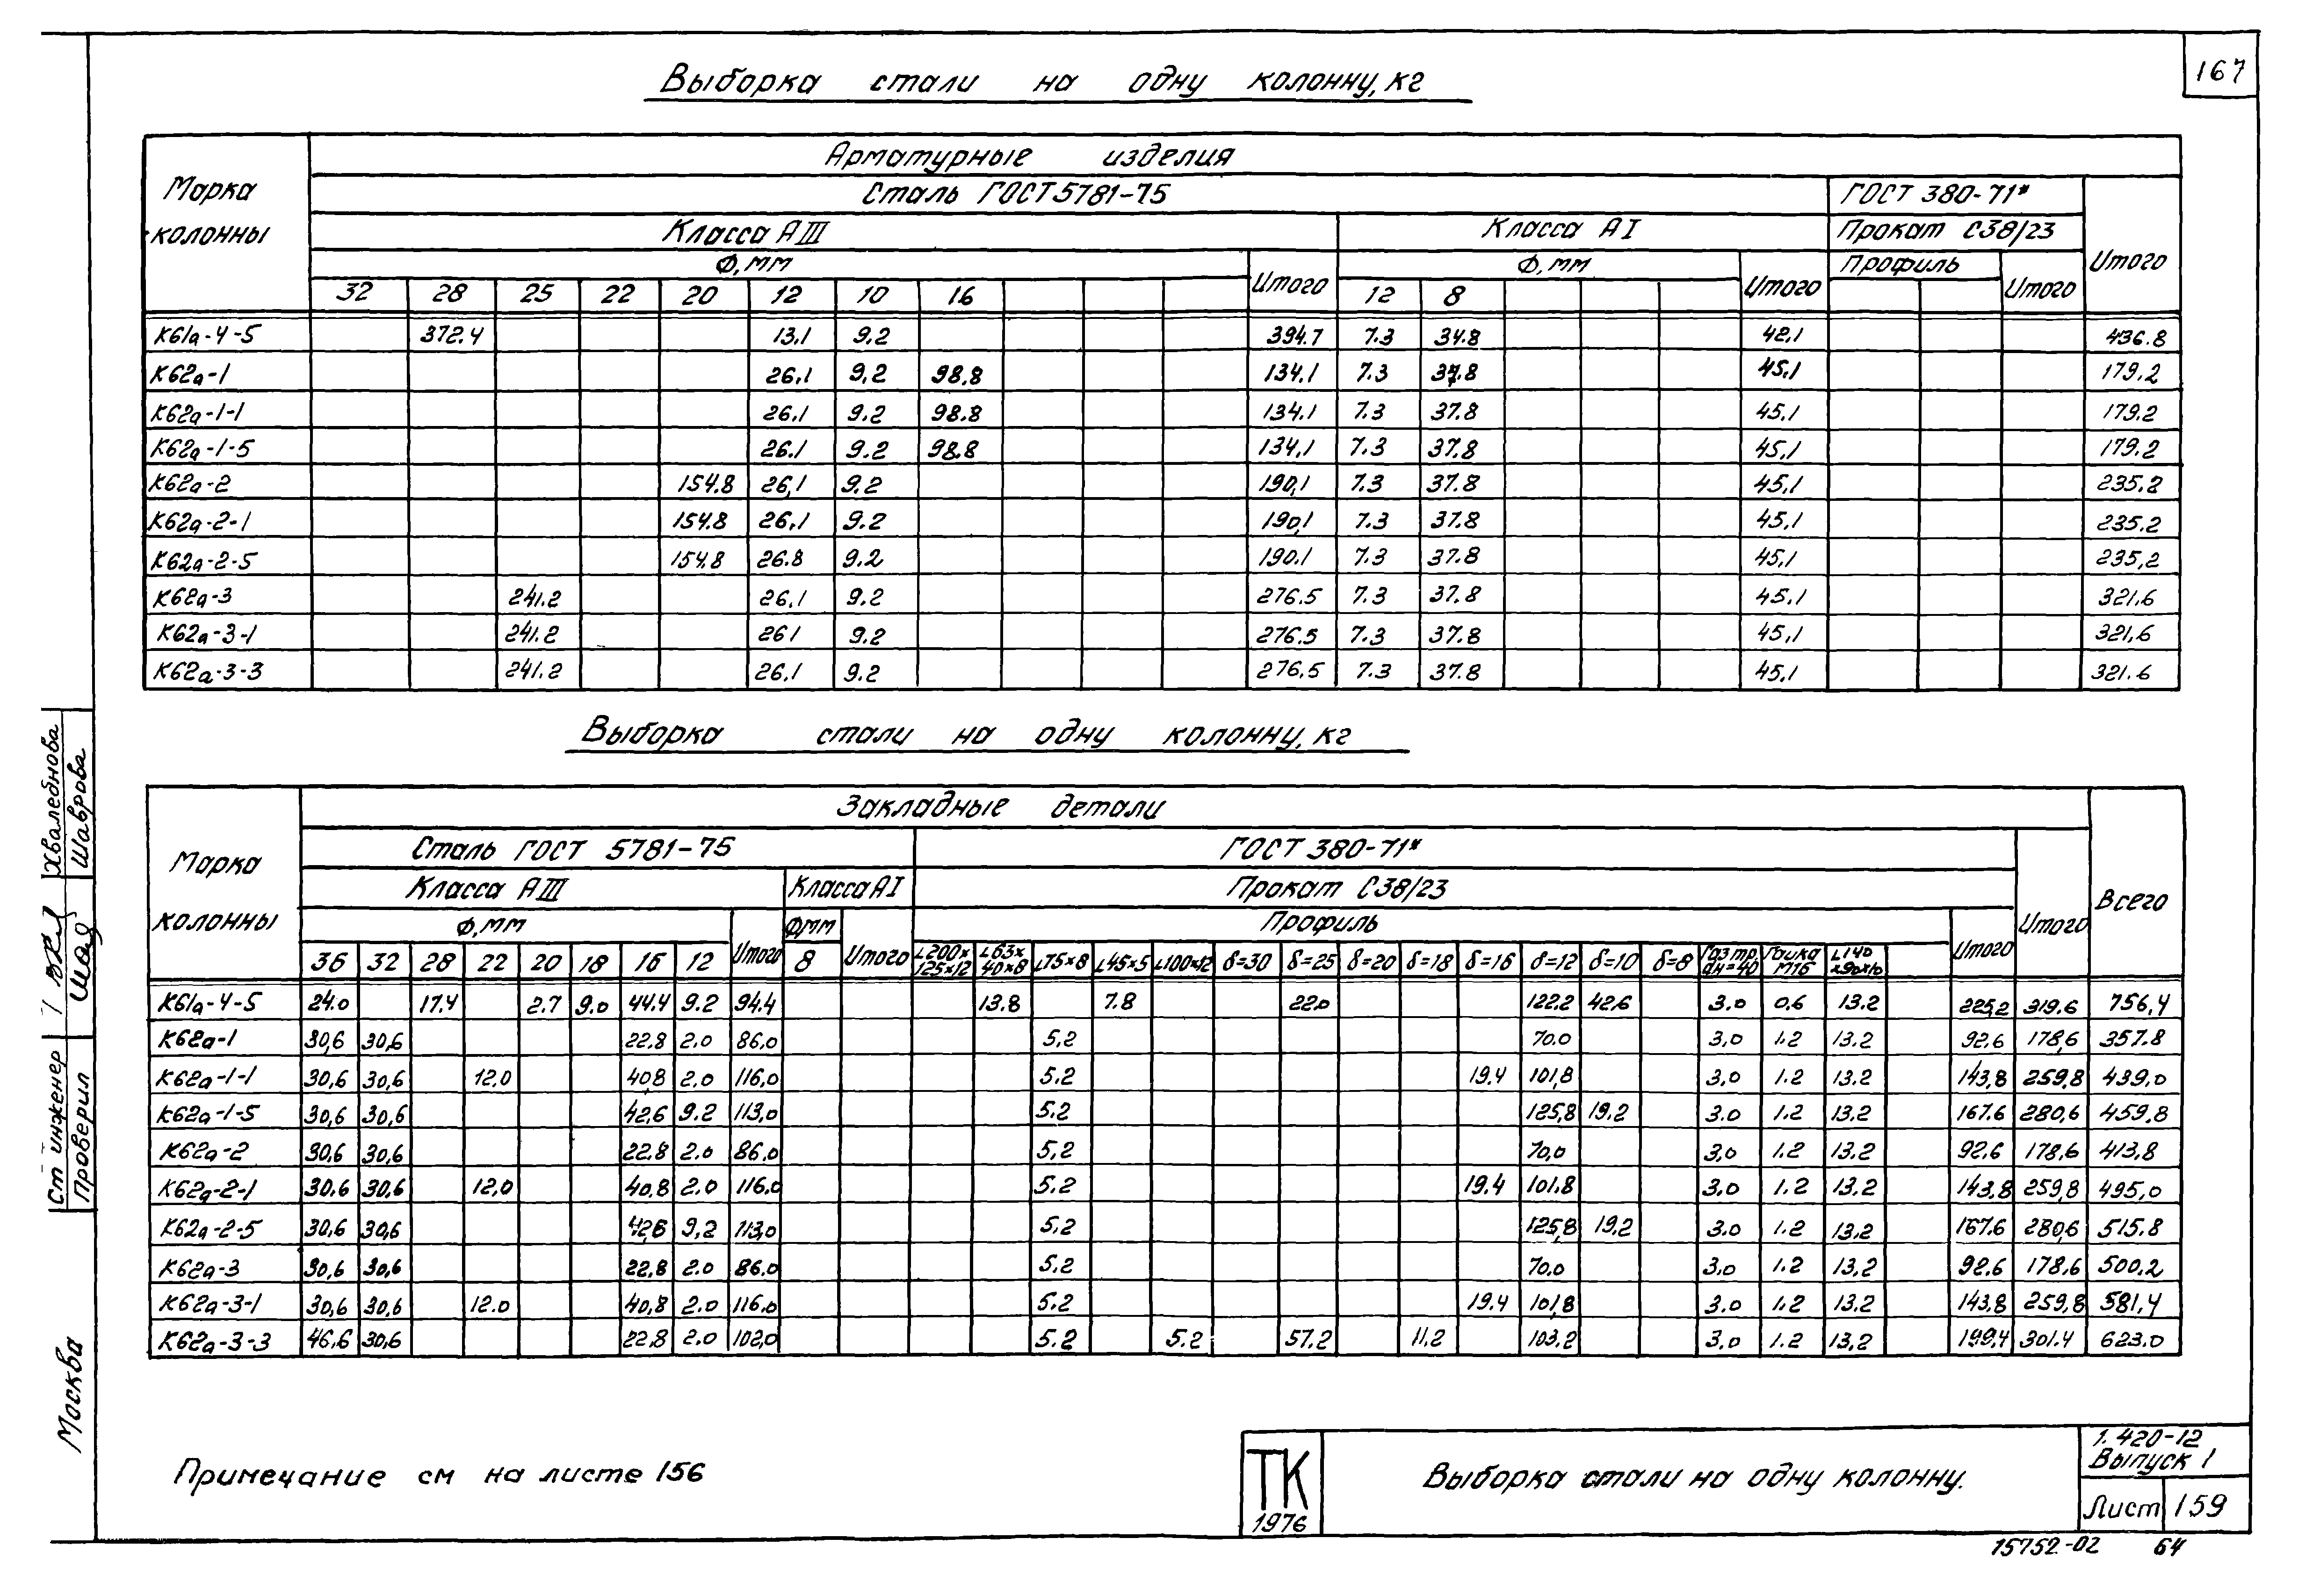 167
Выборка стали на одну колонну, кг
Марка колонны
Арматурные изделия
Сталь ГОСТ 5781-75
ГОСТ 380-71*
Итого
Класса АIII
Класса АI
Прокат С38/23
Ф, мм
Итого
Ф, мм
Итого
Профиль
Итого
32 28 25 22 20 12 10 16 12 8
К61а-4-5 372.4 13.1 9.2 394.7 7.3 34.8 42.1 436.8
К62а-1 26.1 9.2 98.8 134.1 7.3 37.8 45.1 179.2
К62а-1-1 26.1 9.2 98.8 134.1 7.3 37.8 45.1 179.2
К62а-1-5 26.1 9.2 98.8 134,1 7.3 37.8 45.1 179.2
К62а-2 154.8 26,1 9.2 190,1 7.3 37.8 45.1 235.2
К62а-2-1 154.8 26,1 9.2 190,1 7.3 37.8 45.1 235.2
К62а-2-5 154.8 26.8 9.2 190.1 7.3 37.8 45.1 235,2
К62а-3 241.2 26.1 9.2 276.5 7.3 37.8 45.1 321.6
К62а-3-1 241.2 261 9.2 276.5 7.3 37.8 45.1 321,6
К62а-3-3 241.2 26.1 9.2 276,5 7.3 37.8 45.1 321.6
Выборка стали на одну колонну, кг
Марка колонны
Закладные детали
Всего
Сталь ГОСТ 5781-75
ГОСТ 380-71*
Итого
Класса АIII
Класса АI
Прокат С38/23
Ф, мм
Итого
Ф, мм
Итого
Профиль
Итого
36 32 28 22 20 18 16 12 8 L200×125×12 L63×40×8 L75×8 L45×5 L100×12 δ=30 δ=25 δ=20 δ=18 δ=16 δ=12 δ=10 δ=8 Газ тр. дн=40 Гайка М16 L140×90×10
К61а-4-5 24.0 17.4 2.7 9.0 44.4 9.2 94.4 13.8 7.8 22.0 122.2 42.6 3.0 0.6 13.2 225,2 319.6 756,4
К62а-1 30,6 30,6 22.8 2.0 86.0 5.2 70.0 3,0 1.2 13.2 92.6 178,6 357.8
К62а-1-1 30,6 30,6 12.0 40,8 2.0 116,0 5.2 19.4 101,8 3,0 1.2 13.2 143,8 259,8 439,0
К62а-1-5 30,6 30,6 42,6 9.2 113,0 5.2 125,8 19.2 3.0 1.2 13.2 167.6 280,6 459.8
К62а-2 30,6 30,6 22.8 2.0 86.0 5,2 70,0 3,0 1.2 13.2 92.6 178,6 413,8
К62а-2-1 30.6 30,6 12,0 40,8 2.0 116.0 5.2 19.4 101.8 3.0 1.2 13.2 143,8 259,8 495,0
К62а-2-5 30,6 30,6 42,6 9,2 113,0 5.2 125,8 19,2 3.0 1.2 13,2 167.6 280,6 515.8
К62а-3 30,6 30,6 22,8 2.0 86.0 5.2 70,0 3.0 1.2 13,2 92.6 178.6 500,2
К62а-3-1 30,6 30,6 12.0 40,8 2.0 116.0 5.2 19.4 101,8 3.0 1.2 13.2 143,8 259,8 581,4
К62а-3-3 46,6 30,6 22.8 2.0 102,0 5.2 5.2 57.2 11.2 103,2 3.0 1.2 13,2 199,4 301.4 623.0
Примечание см на листе 156
ТК
1976
Выборка стали на одну колонну.
1.420-12
Выпуск 1
Лист 159
15752-02 64
Ст инженер Хвалебнова
Проверил Шаврова
Москва